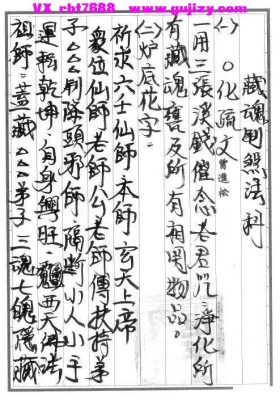 VX_rbt7688 www.gujizy.com
藏魂制煞法科
(一)○化疏文 曾進松
一用三張溪錢催念老君咒:淨化所
有藏魂甕及所有相用物品。
(二)炉底花字:
祈求六壬仙師 本師 玄天上帝
眾位仙師 老師公 老師傅扶持弟
子△△△制降頭邪師 隔断小人小手
運轉乾坤 自身興旺 西天佛法
祖師 蓋藏△△△弟子 三魂七魄隱藏